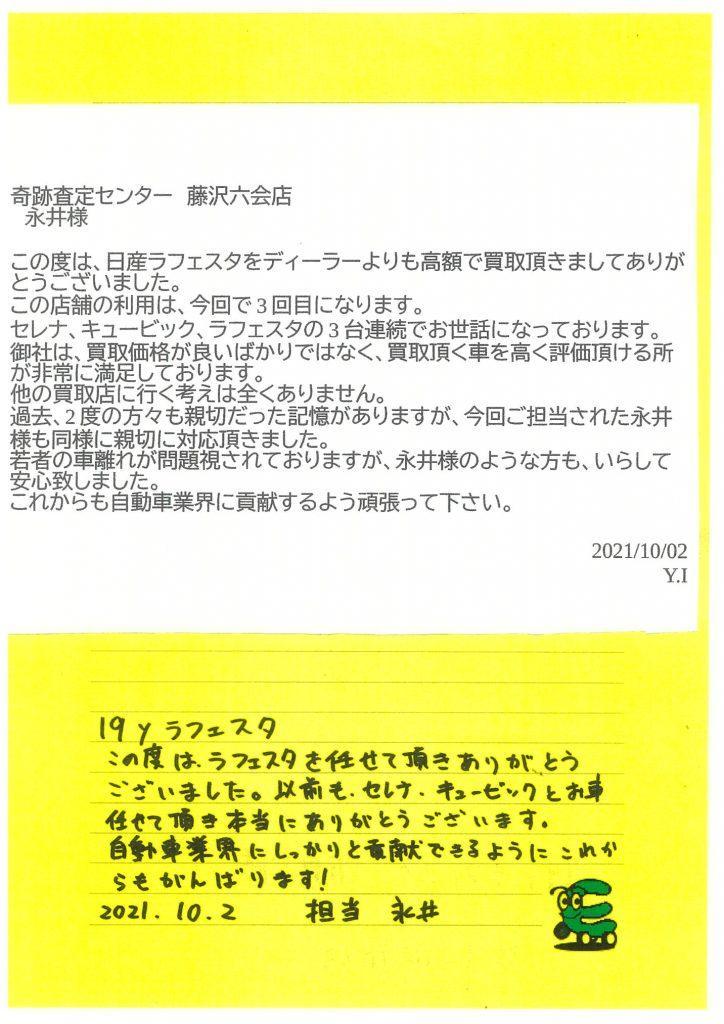 奇跡査定センター　藤沢六会店
永井様
この度は、日産ラフェスタをディーラーよりも高額で買取頂きましてありが
とうございました。
この店舗の利用は、今回で３回目になります。
セレナ、キュービック、ラフェスタの３台連続でお世話になっております。
御社は、買取価格が良いばかりではなく、買取頂く車を高く評価頂ける所
が非常に満足しております。
他の買取店に行く考えは全くありません。
過去、２度の方々も親切だった記憶がありますが、今回ご担当された永井
様も同様に親切に対応頂きました。
若者の車離れが問題視されておりますが、永井様のような方も、いらして
安心致しました。
これからも自動車業界に貢献するよう頑張って下さい。
2021/10/02
Y.I
19y ラフェスタ
この度は、ラフェスタを任せて頂きありがとう
ございました。以前も、セレナ、キュービックとお車
任せて頂き本当にありがとうございます。
自動車業界にしっかりと貢献できるようにこれか
らもがんばります!
2021.10.2　担当　永井